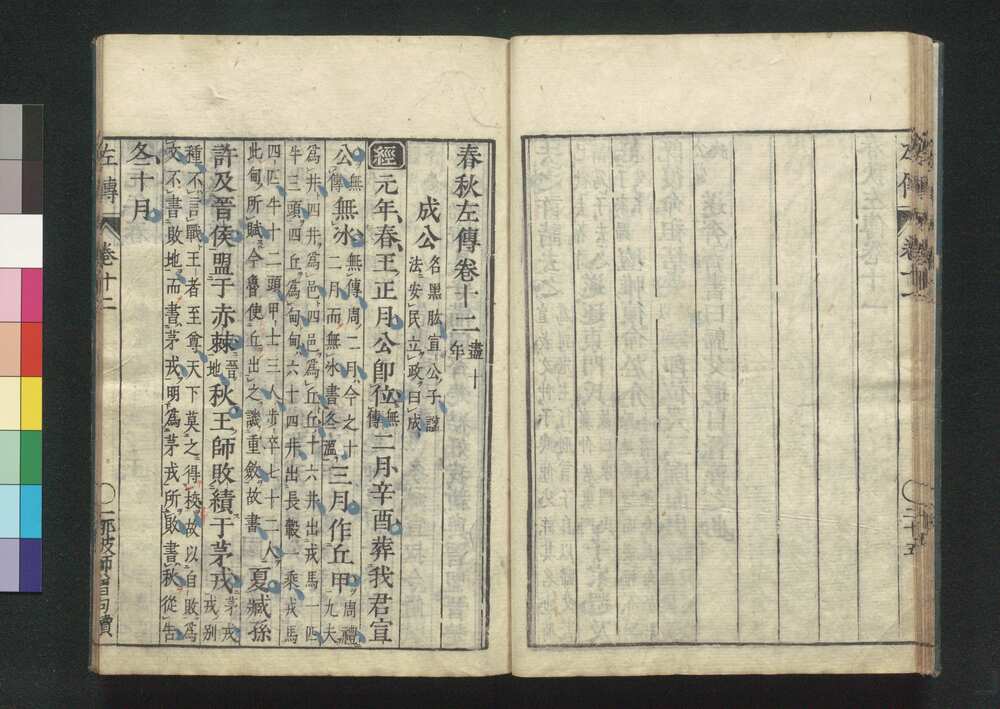 春秋左傳卷十二 盡十年
成公 名黑肱宣公子諡法安民立政曰成
經 元年春王正月公即位 無傳 二月辛酉葬我君宣
公 無傳 無冰 無傳周二月今之十二月而無冰書冬溫 三月作丘甲 周禮九夫
爲井四井爲邑四邑爲丘丘十六井出戎馬一匹
牛三頭四丘爲甸甸六十四井出長轂一乘戎馬
四匹牛十二頭甲士三人步卒七十二人
此甸所賦今魯使丘出之譏重斂故書 夏臧孫
許及晉侯盟于赤棘 晉地 秋王師敗績于茅戎 茅戎戎別
種不言戰王者至尊天下莫之得校故以自敗爲
文不書敗地而書茅戎明爲茅戎所敗書秋從告
冬十月
左傳 卷十二 一 那波師曾句讀